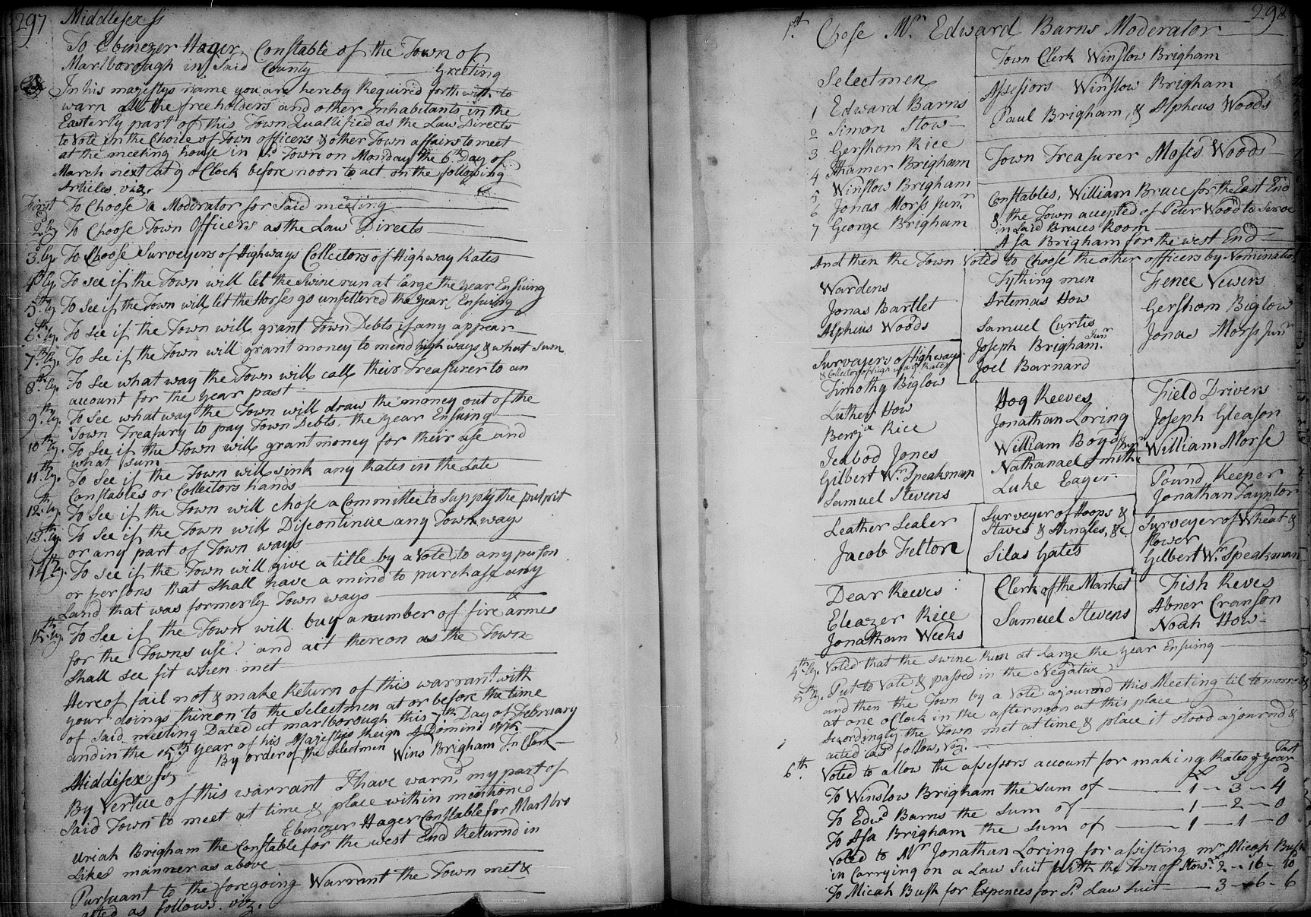 297
Middlesex ss
To Ebenezer Hager Constable of the Town of
Marlborough in Said County Greeting
In his majestys name you are hereby Required forthwith to
warn all the freeholders and other Inhabitants in the
Easterly part of this Town Quallified as the Law Directs
to Vote in the Choice of Town officers & other Town affairs to meet
at the meeting house in sd. Town on Monday the 6th Day of
March next at 9 o Clock before noon to act on the following
Articles viz.
First To Choose a Moderator for Said meeting
2dly To Choose Town Officers as the Law Directs
3dly To Choose Surveyers of Highways Collectors of Highway Rates
4thly To see if the Town will let the Swine run at large the year Ensuing
5thly To see if the Town will let the Horses go unfettered the year Ensuing
6thly To see if the Town will grant Town Debts if any appear
7thly To see if the Town will grant money to mend highways & what Sum
8thly To see what way the Town will call their Treasurer to an
account for the year past
9thly To see what way the Town will draw the money out of the
Town Treasury to pay Town Debts, the year Ensuing
10thly To see if the Town will grant money for their use and
what Sum
11thly To see if the Town will sink any Rates in the late
Constables or Collectors hands
12thly To see if the Town will chose a Committe to Supply the pulpit
13thly To see if the Town will Discontinue any Town way
or any part of Town ways
14thly To see if the Town will give a title by a Vote to any person
or persons that Shall have a mind to purchase any
Land that was formerly Town ways
15thly To See if the Town will buy a number of fire arms
for the Towns use? and act thereon as the Town
Shall see fit when met
Hereof fail not & make Return of this warrant with
your doings thereon to the Selectmen at or before the time
of Said meeting Dated at marlborough this Day of February
and in the 15th year of his Majesties Reign A Domini
By order of the Selectmen Wins Brigham Tn Clerk
Middlesex ss
By Vertue of this warrant I have warnd my part of
Said Town to meet at time & place within mentioned
Ebenezer Hager Constable for Marlbro
Uriah Brigham the Constable for the west End Returnd in
Likes manner as above
Pursuant to the foregoing Warrant the Town met &
acted as follows. viz.
298
1st. Chose Mr. Edward Barns Moderator
Selectmen
1 Edward Barns
2 Simon Stow
3 Gershom Rice
4 Thamer Brigham
5 Winslow Brigham
6 Jonas Morss Junr
7 George Brigham
Town Clerk Winslow Brigham
Assessors Winslow Brigham
Paul Brigham, & Alpheus Woods
Town Treasurer Moses Woods
Constables, William Bruce for the East End
& the Town accepted of Peter Wood to Serve
in Said Bruces Room
Asa Brigham for the west End
And then the Town Voted to Choose the other officers by Nomination
Wardens
Jonas Bartlet
Alpheus Woods
Tything men
Artemas How
Samuel Curtis
Joseph Brigham Junr
Joel Barnard
Fence Vewers
Gershom Biglow
Jonas Morss Junr
Surveyers of Highways
& Collectors of Highways Rates
Timothy Biglow
Luther How
Benja Rice
Icabod Jones
Gilbert Wm Speakman
Samuel Stevens
Hog Reeves
Jonathan Loring
William Boyd Junr
Nathanael Smith
Luke Eager
Field Drivers
Joseph Gleason
William Morse
Pound Keeper
Jonathan Tayntor
Leather Sealer
Jacob Felton
Surveyer of Hoops &
Staves & Shingles, &c
Silas Gates
Surveyer of Wheat &
flower
Gilbert Wm Speakman
Dear Reeves
Eleazer Rice
Jonathan Weeks
Clerk of the Market
Samuel Stevens
Fish Reves
Abner Cranson
Noah How
4thly. Voted that the swine Run at Large the year Ensuing
5thly. Put to Vote & passed in the Negative
and then the Town by a Vote ajournd this Meeting til tomorrow
at one o Clock in the afternoon at this place
Acordingly the Town met at time & place it stood ajournd &
acted as follow, viz.
6th. Voted to allow the assessors account for making Rates of year Past
To Winslow Brigham the sum of 1 - 3 - 4
To Edwd Barns the Sum of 1 - 2 - 0
To Asa Brigham the Sum of 1 - 1 - 0
Voted to Mr Jonathan Loring for assisting mr Micah Bush
in Carrying on a Law Suit with the Town of Stow. 2 - 16 - 10
To Micah Bush for Expences for sd Law Suit 3 - 6 - 6